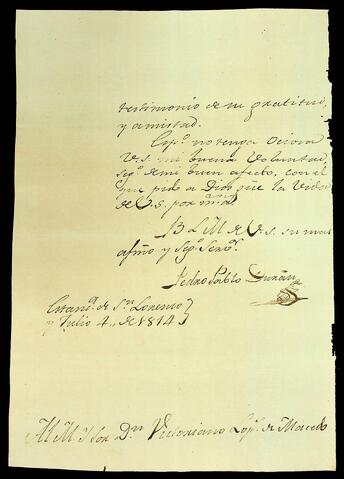 testimonio de mi gratitud,
y amistad.
Espº. no tenga Ociosa
V.S. mi buena Voluntad,
segº. de mi buen afecto, con el
que pido a Dios güe la Vida
de V.S. por mˢ. aˢ.
B L M de V.S. su mas
afmo y Segº. Servºʳ.
Pedro Pablo Durán
Estanª. de Sⁿ. Lorenzo
y Julio 4,, de 1814
Al M. Y Sor. Dⁿ. Victoriano Lopˢ. de Macedo